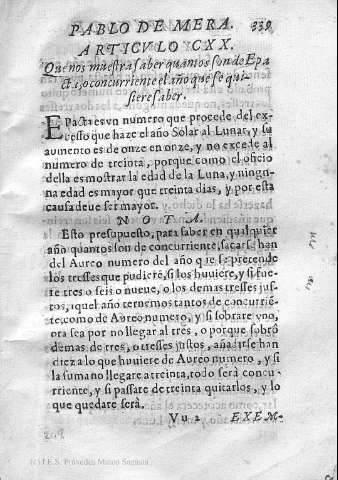 PABLO DE MERA. 339
ARTICVLO CXX.
Que nos muestra saber quantos son de Epac
ta, o concurriente el año que se qui-
siere saber.
EPacta es vn numero que procede del ex-
cesso que haze el año Solar al Lunar, y su
aumento es de onze en onze, y no excede al
numero de treinta, porque como el oficio
della es mostrar la edad de la Luna, y ningu-
na edad es mayor que treinta dias, y por esta
causa deve ser mayor.
NOTA.
Esto presupuesto, para saber en qualquier
año quantos son de concurriente, sacarse han
del Aureo numero del año que se pretende
los tresses que pudiere, si los huuiere, y si fue-
re tres o seis o nueue, o los demas tresses jus-
tos, aquel año ternemos tantos de concurriē-
te, como de Aureo numero, y si sobrare vno,
ora sea por no llegar al tres, o porque sobrò
demas de tres, o tresses justos, añadirse han
diez a lo que huuiere de Aureo numero, y si
la suma no llegare a treinta, todo serà concu-
rriente, y si passare de treinta quitarlos, y lo
que quedare serà.
Vu 2 EXEM-
I.E.S. Práxedes Mateo Sagasta